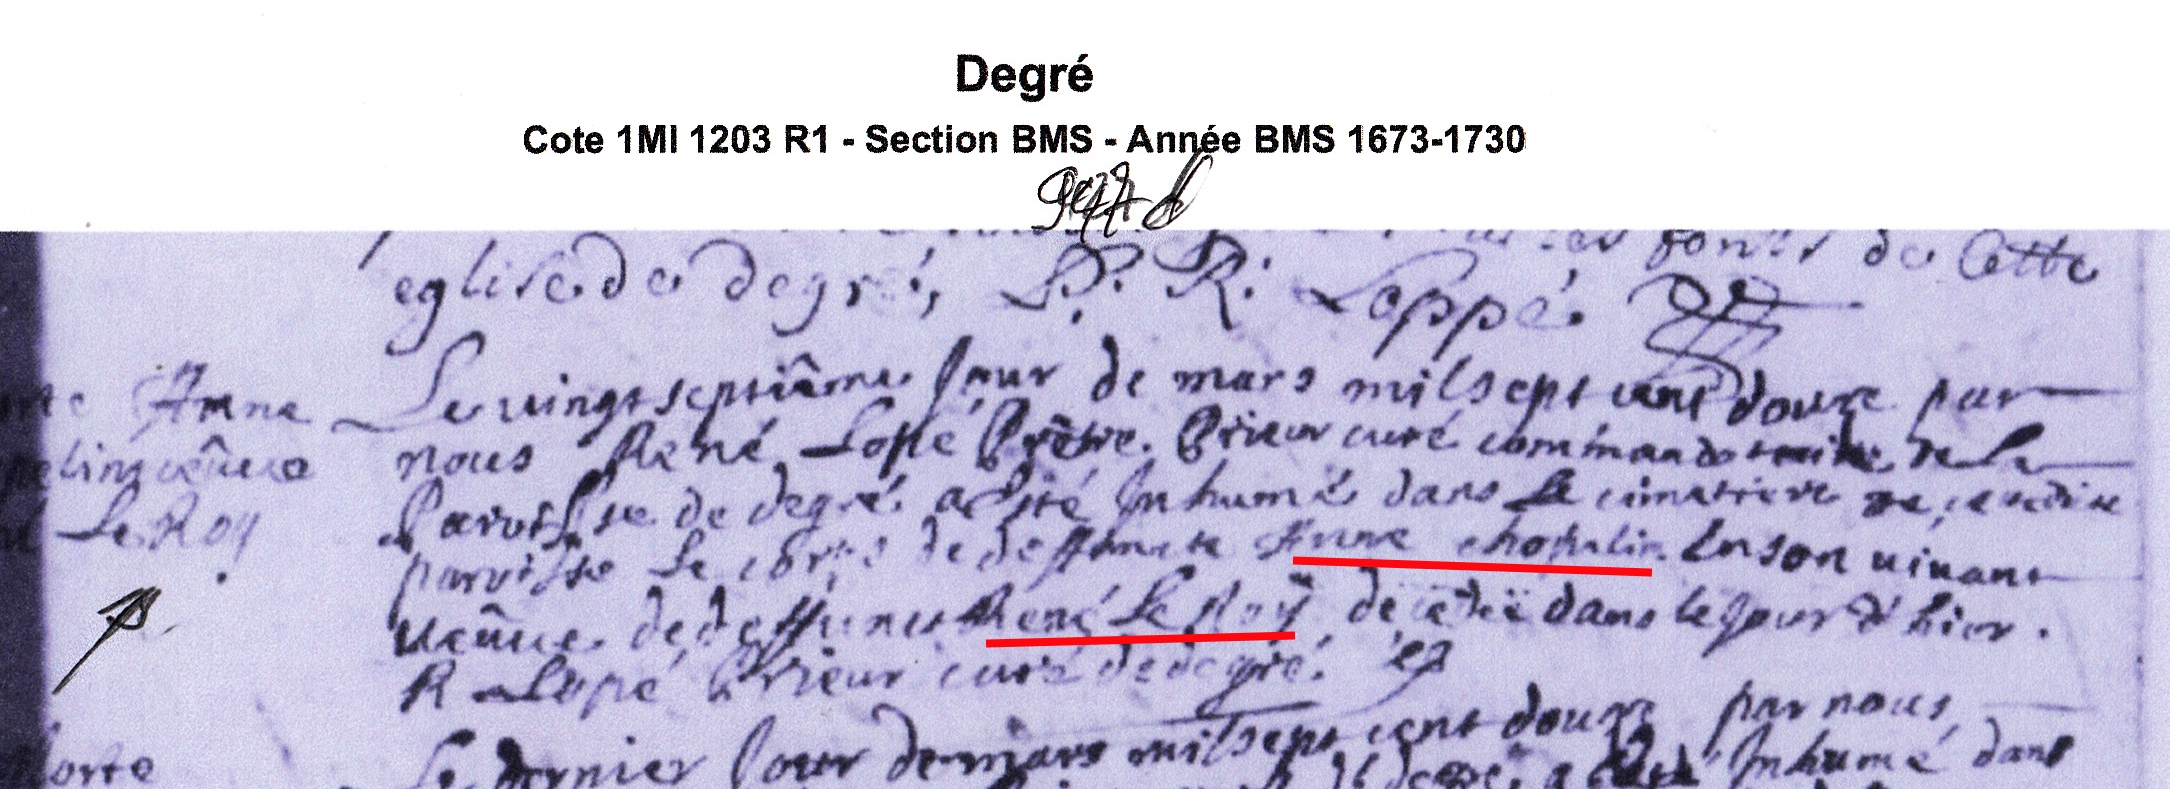 Degré
Cote 1MI 1203 R1 - Section BMS - Année BMS 1673-1730
fonts de Cette
eglise de degré, P. R. Loppé
Anne
Le vingt septiême Jour de mars mil sept cent douze par
nous René Lopé Prêtre Prieur curé commandataire de la
Le Roy
Paroisse de degré a esté Inhumé dans Le cimetiere de
paroisse Le corps de deffuncte Anne chopelin En son vivant
veûue de deffunct René Le Roy decedeë dans le Jour d'hier.
R Lopé Prieur curé de degré.
Le dernier Jour de mars mil sept cent douze par nous
Morte
Inhumé dans